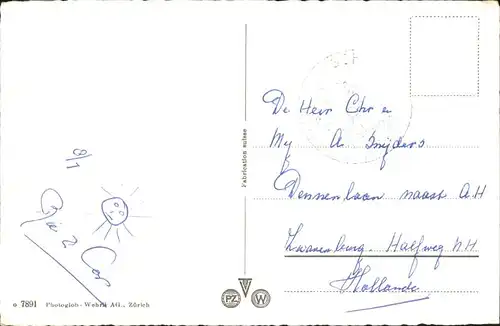 De Heer Chr en
Mej A. Snijders
Dennenlaan naast A.H
Zwanenburg. Halfweg N.H.
Hollande
8/1
Cor
Fabrication suisse
o 7891 Photoglob-Wehrli AG., Zürich
PZ W